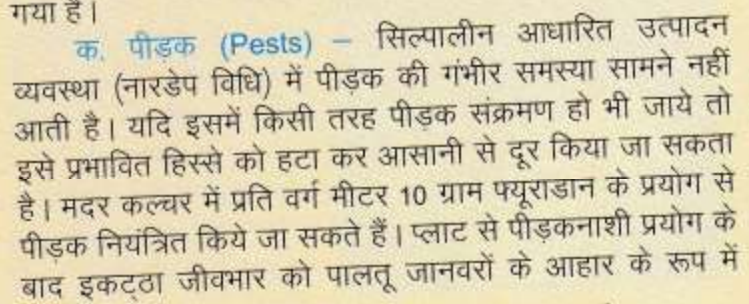 गया है।
क. पीड़क (Pests) – सिल्पालीन आधारित उत्पादन
व्यवस्था (नारडेप विधि) में पीड़क की गंभीर समस्या सामने नहीं
आती है। यदि इसमें किसी तरह पीड़क संक्रमण हो भी जाये तो
इसे प्रभावित हिस्से को हटा कर आसानी से दूर किया जा सकता
है। मदर कल्चर में प्रति वर्ग मीटर 10 ग्राम फ्यूराडान के प्रयोग से
पीड़क नियंत्रित किये जा सकते हैं। प्लाट से पीड़कनाशी प्रयोग के
बाद इकट्ठा जीवभार को पालतू जानवरों के आहार के रूप में